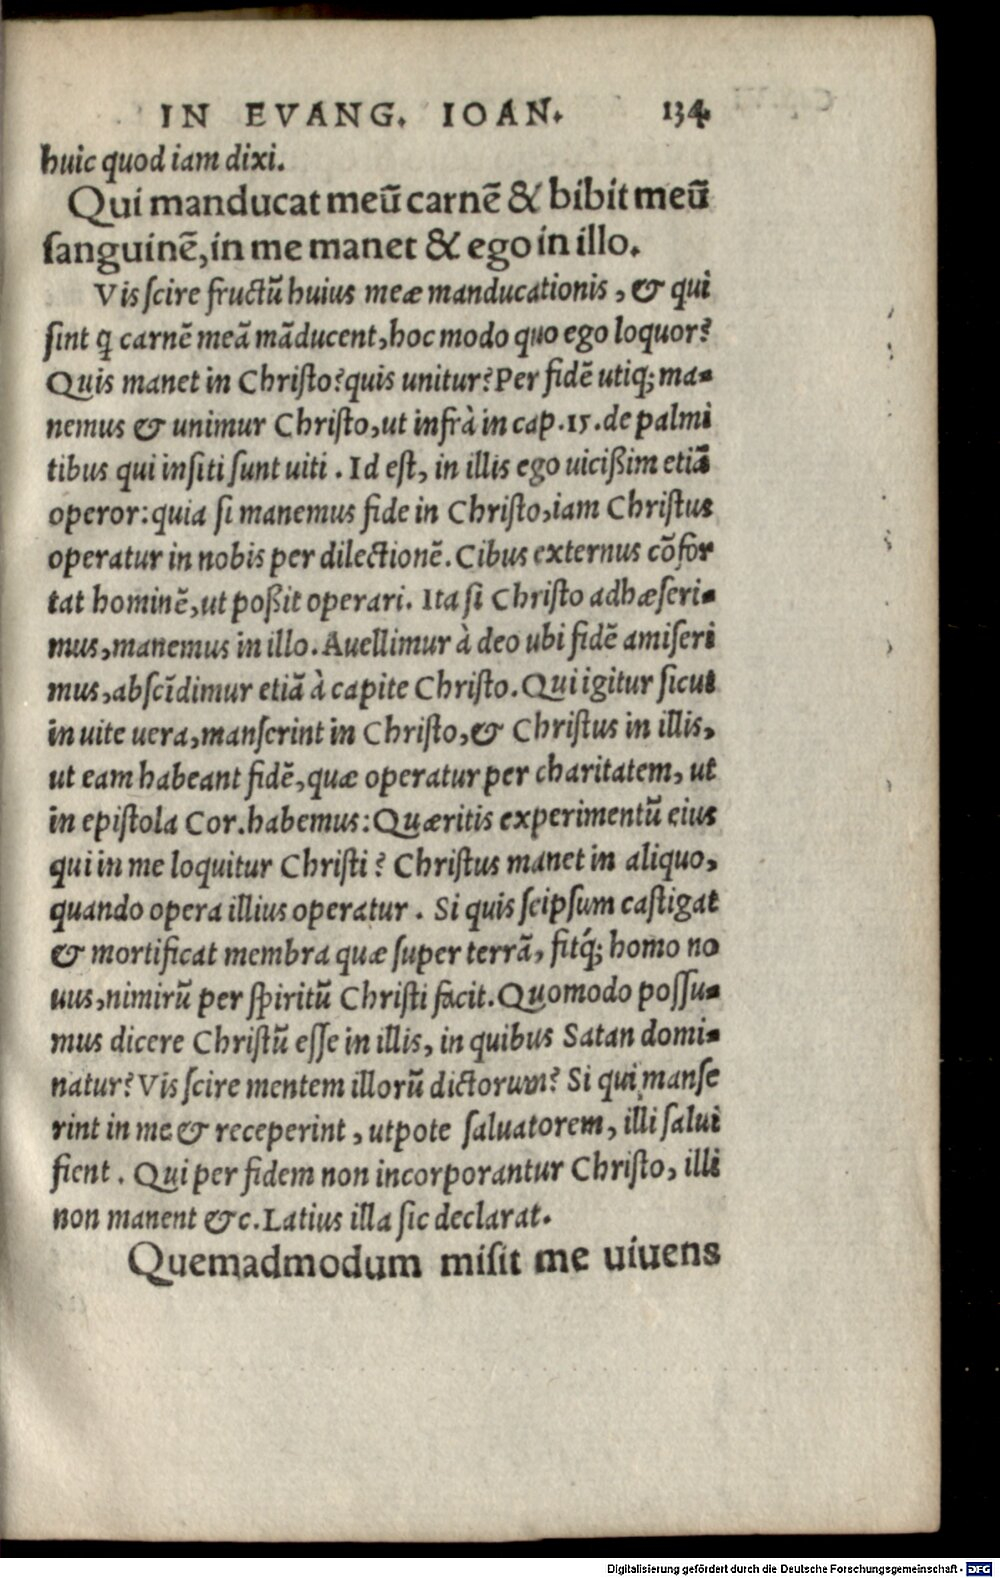 IN EVANG. IOAN. 134.
huic quod iam dixi.
Qui manducat meū carnē & bibit meū
sanguinē, in me manet & ego in illo.
Vis scire fructū huius meæ manducationis, & qui
sint q̃ carnē meā māducent, hoc modo quo ego loquor?
Quis manet in Christo? quis unitur? Per fidē utiq; ma-
nemus & unimur Christo, ut infrà in cap. 15. de palmi
tibus qui insiti sunt uiti. Id est, in illis ego uicißim etiā
operor: quia si manemus fide in Christo, iam Christus
operatur in nobis per dilectionē. Cibus externus cōfor
tat hominē, ut poßit operari. Ita si Christo adhæseri-
mus, manemus in illo. Auellimur à deo ubi fidē amiseri
mus, abscīdimur etiā à capite Christo. Qui igitur sicut
in uite uera, manserint in Christo, & Christus in illis,
ut eam habeant fidē, quæ operatur per charitatem, ut
in epistola Cor. habemus: Quæritis experimentū eius
qui in me loquitur Christi? Christus manet in aliquo,
quando opera illius operatur. Si quis seipsum castigat
& mortificat membra quæ super terrā, fitq́; homo no
uus, nimirū per spiritū Christi facit. Quomodo possu-
mus dicere Christū esse in illis, in quibus Satan domi-
natur? Vis scire mentem illorū dictorum? Si qui manse
rint in me & receperint, utpote saluatorem, illi salui
fient. Qui per fidem non incorporantur Christo, illi
non manent &c. Latius illa sic declarat.
Quemadmodum misit me uiuens
Digitalisierung gefördert durch die Deutsche Forschungsgemeinschaft - DFG